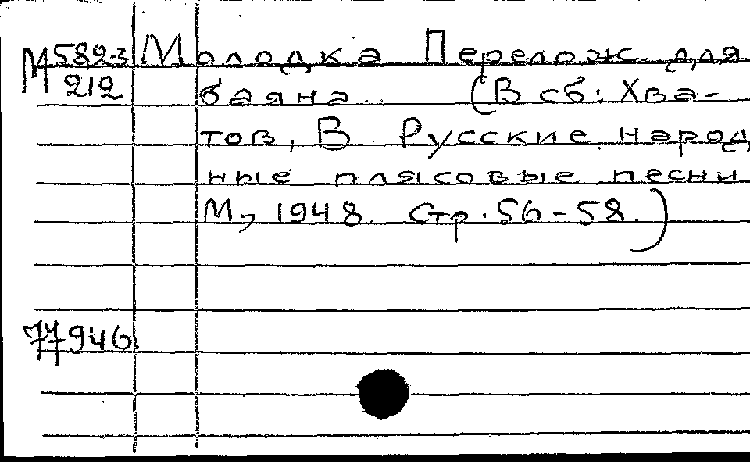 М 582-3 Молодка Перелож. для
212 баяна. (В сб: Хва-
тов, В Русские народ
ные плясовые песни
М., 1948. Стр. 56-58.)
77946